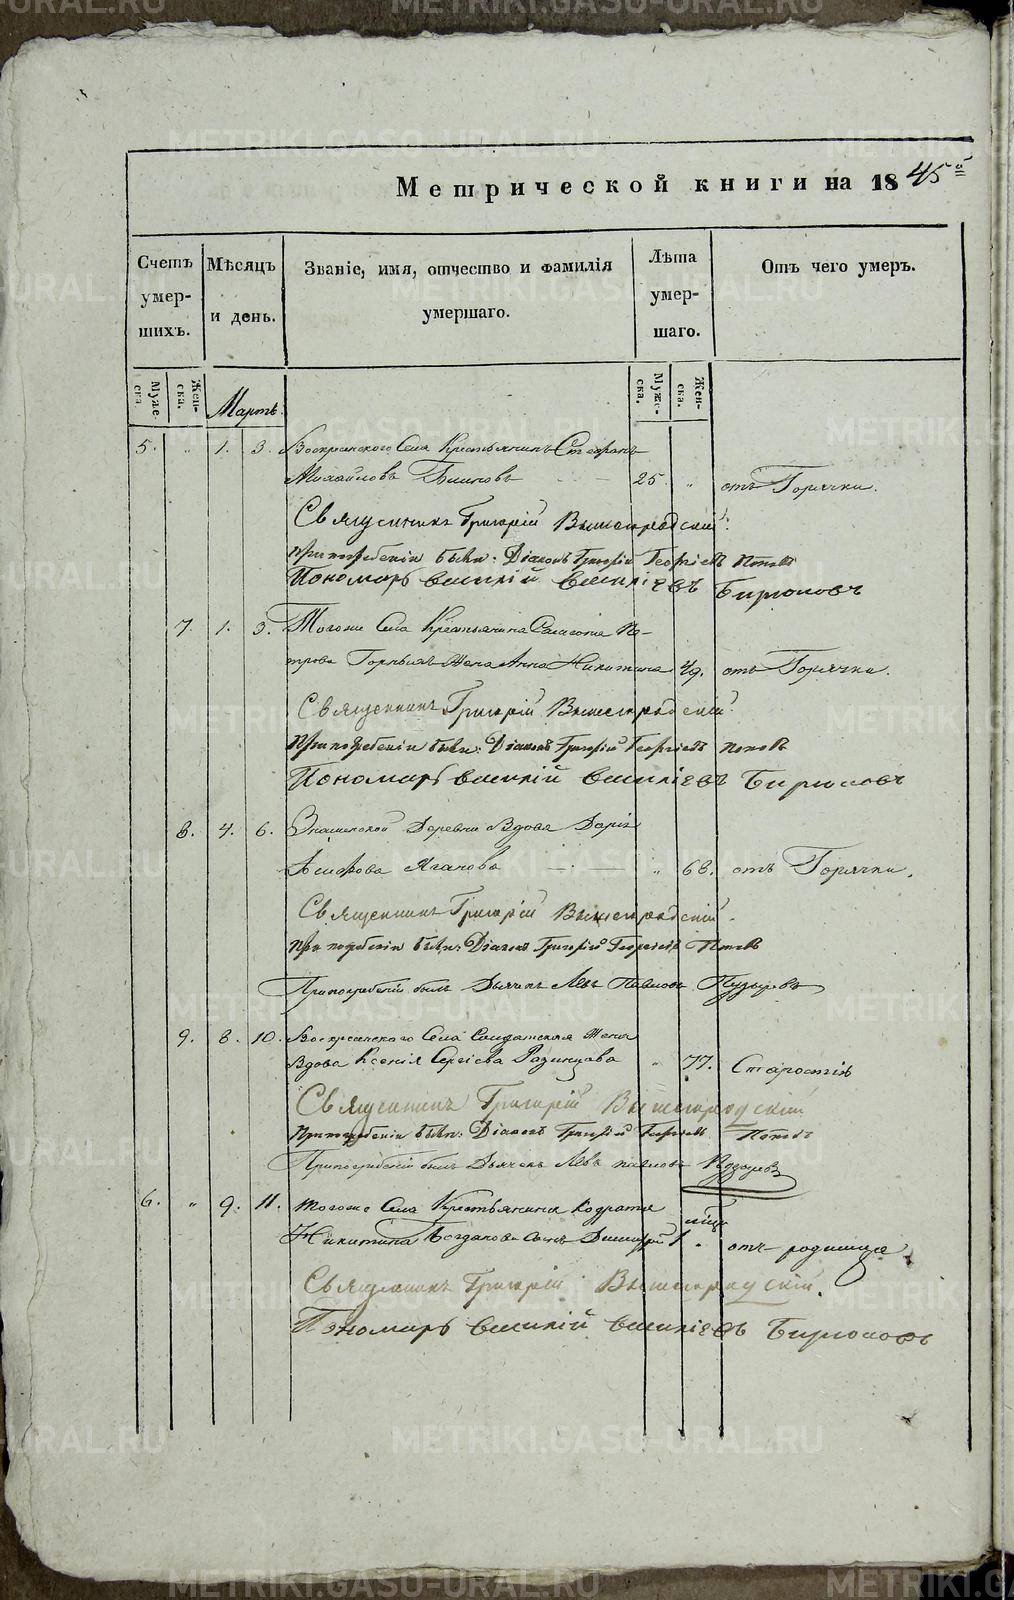 Метрической книги на 1845й
Счетъ умер-шихъ.
Мѣсяцъ и день.
Званіе, имя, отчество и фамилія умершаго.
Лѣта умер-шаго.
Отъ чего умеръ.
Муже-ска
Жен-ска.
Мартъ.
Муже-ска.
Жен-ска.
5. " 1. 3. Воскресенскаго Села Крестьянинъ Стефанъ
Михайловъ 25. " отъ Горячки.
Священникъ Григорій Вышегородскій.
При погребеніи были: Діаконъ Григорій Георгіевъ Поповъ
Пономарь Василій Васильевъ Бирюковъ
7. 1. 3. Тогоже Села Крестьянина Пе-
трова Жена Анна Никитина 49. отъ Горячки.
Священникъ Григорій Вышегородскій.
При погребеніи были: Діаконъ Григорій Георгіевъ Поповъ
Пономарь Василій Васильевъ Бирюковъ
8. 4. 6. Знаменской Деревни Вдова Дарія
Аганова " 68. отъ Горячки.
Священникъ Григорій Вышегородскій.
При погребеніи были: Діаконъ Григорій Георгіевъ Поповъ
При погребеніи былъ Дьячекъ Левъ Павловъ Пузыревъ
9. 8. 10. Воскресенскаго Села Солдатская Жена
Вдова Ксенія Сергіева " 77. Старостію
Священникъ Григорій Вышегородскій
При погребеніи были: Діаконъ Григорій Георгіевъ Поповъ
При погребеніи былъ Дьячекъ Левъ Павловъ Пузыревъ
6. " 9. 11. Тогоже Села Крестьянина Кодратія
Никитина Богданова Сынъ Димитрій 1 отъ родимца
Священникъ Григорій Вышегородскій.
Пономарь Василій Васильевъ Бирюковъ
METRIKI.GASO-URAL.RU